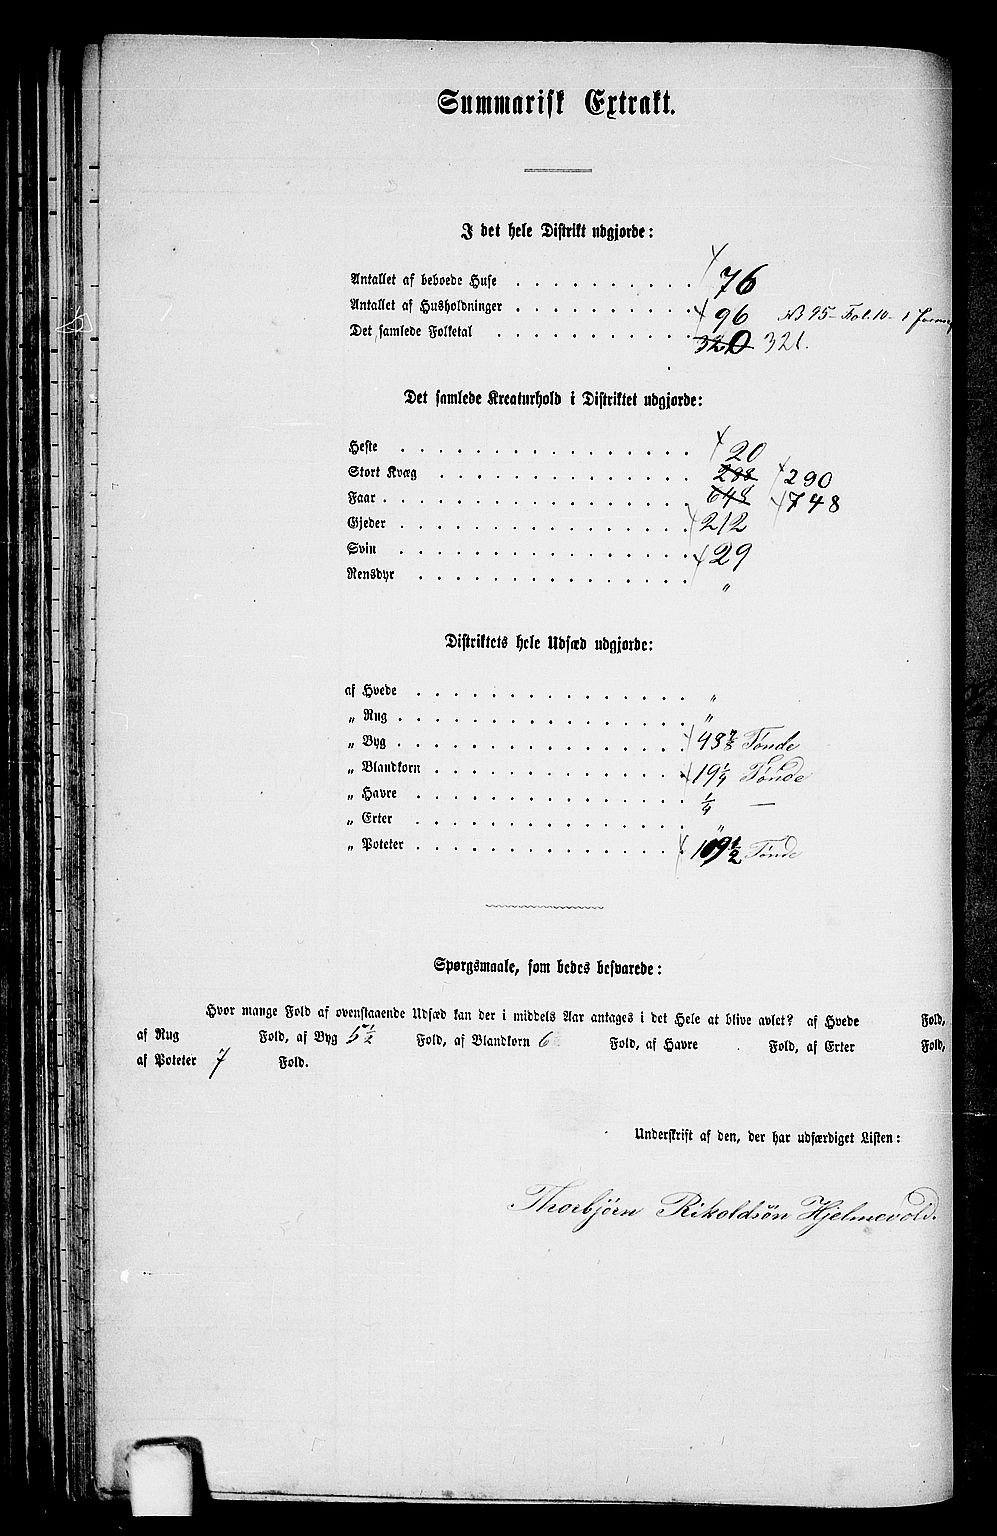 Summarisk Extrakt.
I det hele Distrikt udgjorde:
Antallet af beboede Huse . . . . . . . . . . 76
Antallet af Husholdninger . . . . . . . . . . 96 NB 95 - Fol. 10 - 1
Det samlede Folketal . . . . . . . . . . . 320 321.
Det samlede Kreaturhold i Distriktet udgjorde:
Heste . . . . . . . . . . . . . . . . 20
Stort Kvæg . . . . . . . . . . . . . . 288 290
Faar . . . . . . . . . . . . . . . . . 648 748
Gjeder . . . . . . . . . . . . . . . . 212
Svin . . . . . . . . . . . . . . . . 29
Rensdyr . . . . . . . . . . . . . . . „
Distriktets hele Udsæd udgjorde:
af Hvede . . . . . . . . . . . . . . . „
„ Rug . . . . . . . . . . . . . . . . „
„ Byg . . . . . . . . . . . . . . . . 43 7/8 Tønde
„ Blandkorn . . . . . . . . . . . . . . 19 1/4 Tønde
„ Havre . . . . . . . . . . . . . . . 1/4 —
„ Erter . . . . . . . . . . . . . . . „
„ Poteter . . . . . . . . . . . . . . . 109 1/2 Tønde
Spørgsmaale, som bedes besvarede:
Hvor mange Fold af ovenstaaende Udsæd kan der i middels Aar antages i det Hele at blive avlet? af Hvede Fold,
af Rug Fold, af Byg 5 1/2 Fold, af Blandkorn 6 Fold, af Havre Fold, af Erter Fold,
af Poteter 7 Fold.
Underskrift af den, der har udfærdiget Listen:
Thorbjörn Rikoldsøn Hjelmevold.